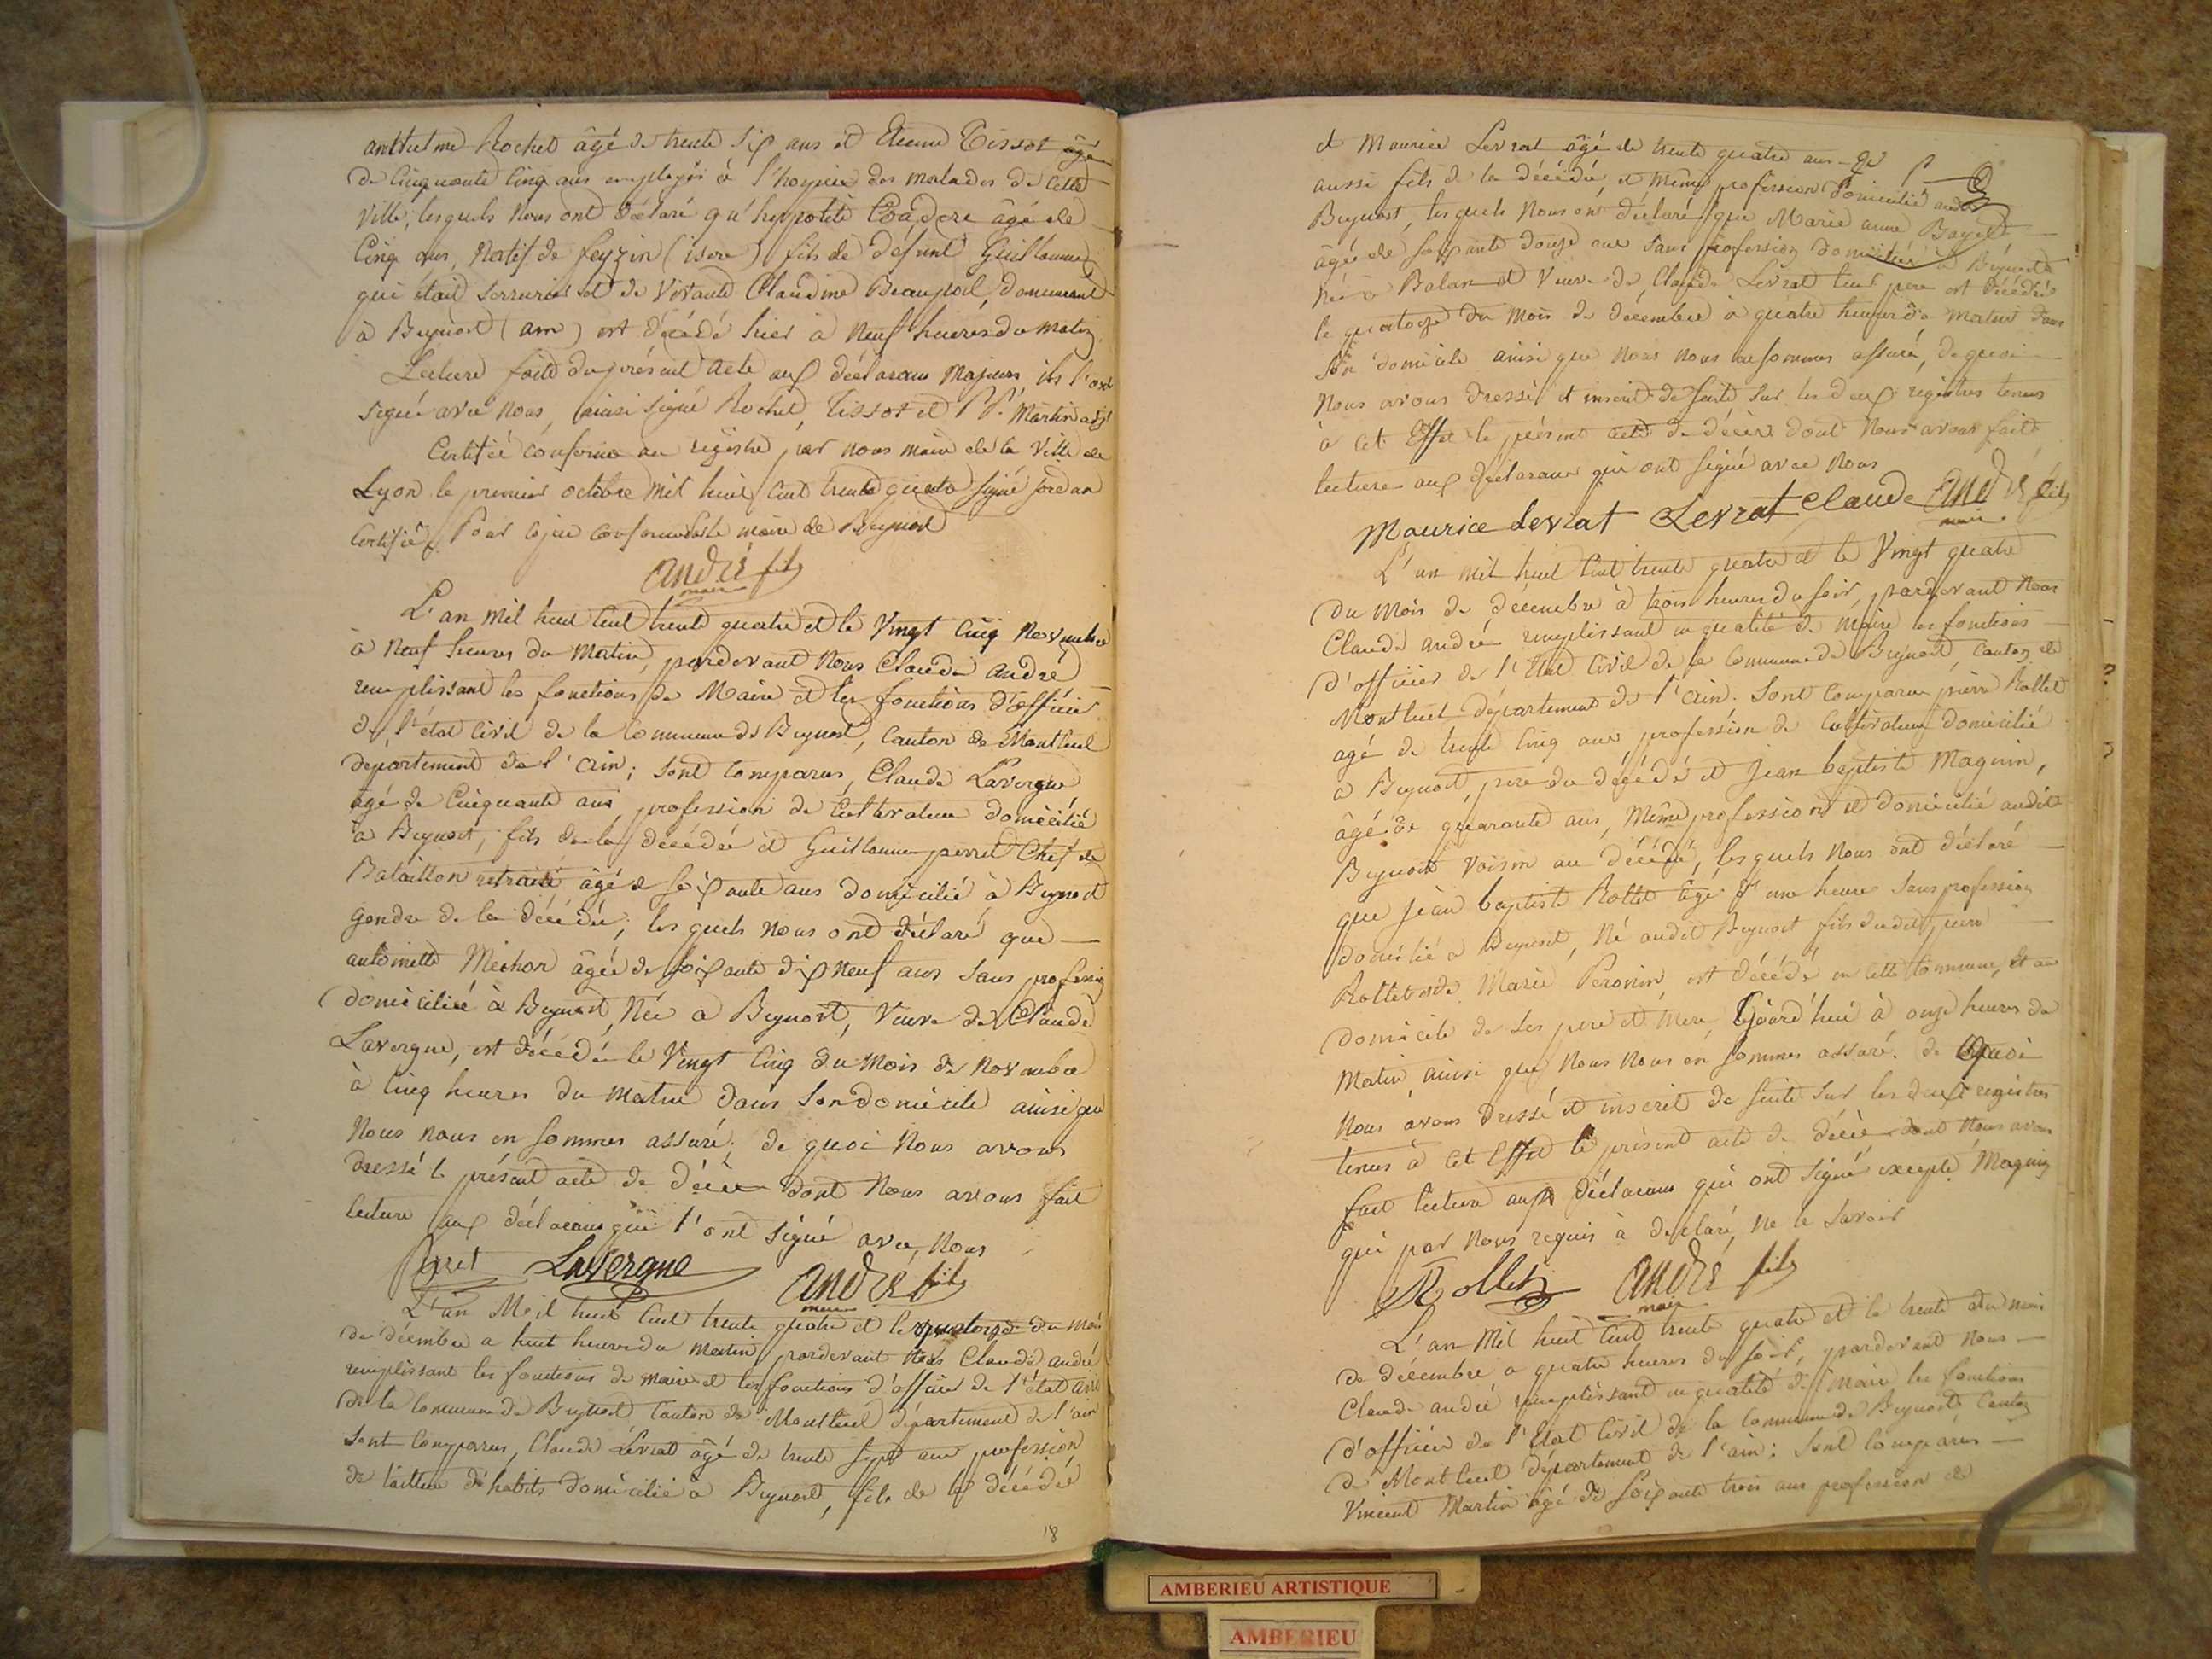 anthelme Rochet âgé de trente six ans et Etienne Tissot âgé
de Cinquante Cinq ans employés à l'hospice des malades de Cette
Ville; lesquels Nous ont déclaré qu'hyppolite âgé de
Cinq ans, Natif de feyzin (isere) fils de défunt Guillaume
qui était serrurier et de Vivante Claudine Beaupoil, demeurant
à Beynost (ain) est décédé hier à Neuf heures du matin
Lecture faite du présent acte aux déclarans Majeurs, ils l'ont
signé avec nous, ainsi signé Rochet, Tissot et Martin adj
Certifié conforme au registre par nous maire de la Ville de
Lyon le premier octobre mil huit cent trente quatre signé
Certifié Pour copie conforme le maire de Beynost
andré fils
maire
L'an mil huit cent trente quatre et le Vingt Cinq Novembre
à Neuf heures du Matin, pardevant Nous Claude andré
remplissant les fonctions de Maire et les fonctions d'officier
de l'état Civil de la Commune de Beynost, Canton de Montluel
département de l'ain; sont Comparus, Claude Lavergne
âgé de Cinquante ans, profession de Cultivateur domicilié
à Beynost, fils de la décédée et Guillaume perret Chef de
Bataillon retraité âgé de soixante ans domicilié à Beynost
gendre de la décédée; lesquels Nous ont déclaré que
antoinette Michon âgée de soixante dix Neuf ans sans profession
domiciliée à Beynost, Née à Beynost, Veuve de Claude
Lavergne, est décédée le Vingt Cinq du Mois de Novembre
à Cinq heures du matin dans son domicile ainsi que
Nous nous en sommes assuré; de quoi Nous avons
dressé le présent acte de décès dont Nous avons fait
lecture aux déclarans qui l'ont signé avec Nous
Lavergne andré fils
maire
L'an Mil huit Cent trente quatre et le quatorze du mois
de décembre a huit heures du matin, pardevant Nous Claude andré
remplissant les fonctions de maire et les fonctions d'officier de l'état Civil
de la Commune de Beynost Canton de Montluel département de l'ain
sont Comparus, Claude Levrat âgé de trente sept ans profession
de tailleur d'habits domicilié à Beynost, fils de la décédée
18
et Maurice Levrat âgé de trente quatre ans
aussi fils de la décédée, et même profession domicilié audit
Beynost, lesquels Nous ont déclaré que Marie anne
âgée de soixante douze ans sans profession domiciliée à Beynost
Née à Balan et Veuve de Claude Levrat leur pere est décédée
le quatorze du Mois de décembre à quatre heures du matin dans
son domicile ainsi que Nous Nous en sommes assuré, de quoi
Nous avons dressé et inscrit de suite sur les deux registres tenus
à cet Effet le présent acte de décès dont Nous avons fait
lecture aux déclarans qui ont signé avec Nous
Maurice Levrat Levrat Claude andré fils
maire
L'an mil huit Cent trente quatre et le Vingt quatre
du Mois de décembre à trois heures du soir, pardevant Nous
Claude andré remplissant en qualité de Maire les fonctions
d'officier de l'Etat Civil de la Commune de Beynost, Canton de
Montluel département de l'ain; Sont Comparus pierre Rollet
agé de trente Cinq ans, profession de Cultivateur domicilié
à Beynost, pere du décédé et Jean baptiste Magnin,
âgé de quarante ans, Même profession et domicilié audit
Beynost Voisin au décédé, lesquels Nous ont déclaré
que Jean baptiste Rollet âgé d'une heure Sans profession
domicilié à Beynost, Né audit Beynost fils dudit pierre
Rollet et de Marie Peronin, est décédé en cette Commune, et au
domicile de ses pere et mere, à onze heures du
Matin ainsi que Nous Nous en sommes assuré. de quoi
Nous avons dressé et inscrit de suite Sur les deux registres
tenus à cet Effet le présent acte de décès dont Nous avons
fait lecture aux déclarans qui ont signé excepté Magnin
qui par Nous requis à déclaré Ne le Savoir
Rollet andré fils
maire
L'an Mil huit Cent trente quatre et le trente du mois
de décembre a quatre heures du soir, pardevant nous
Claude andré remplissant en qualité de Maire les fonctions
d'officier de l'Etat Civil de la Commune de Beynost Canton
de Montluel département de l'ain: sont Comparus
Vincent Martin âgé de soixante trois ans profession de
AMBERIEU ARTISTIQUE
AMBERIEU